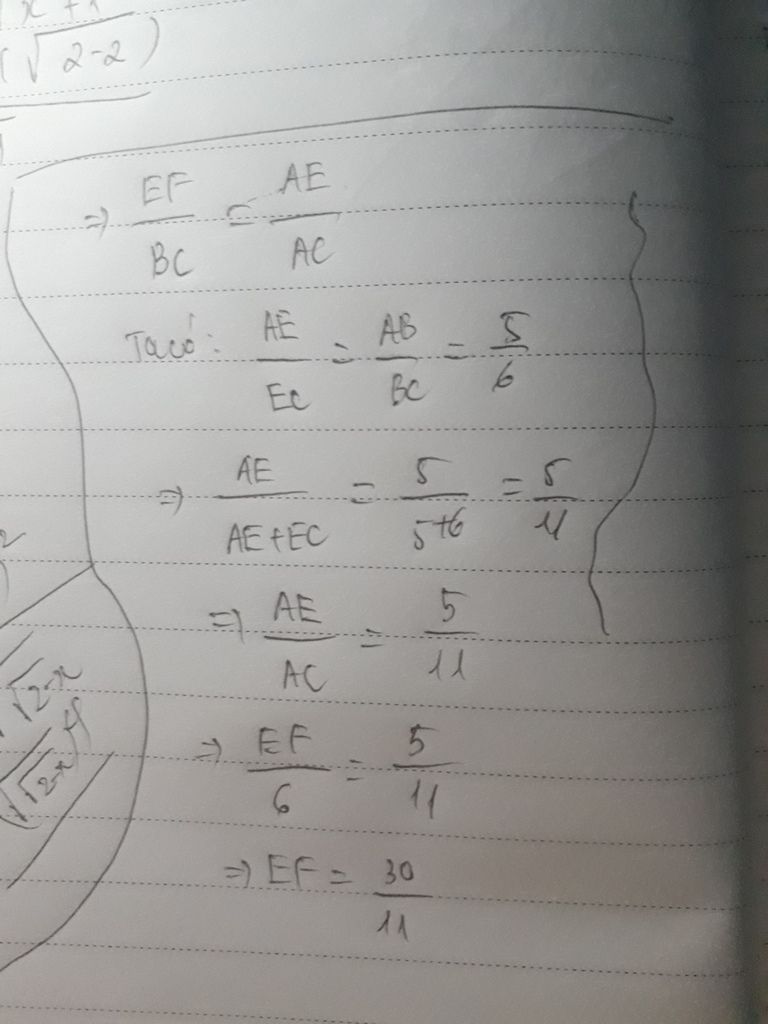 (√2-2)
⇒ EF/BC = AE/AC
Ta có: AE/EC = AB/BC = 5/6
⇒ AE/AE+EC = 5/5+6 = 5/11
⇒ AE/AC = 5/11
⇒ EF/6 = 5/11
⇒ EF = 30/11
√2-x